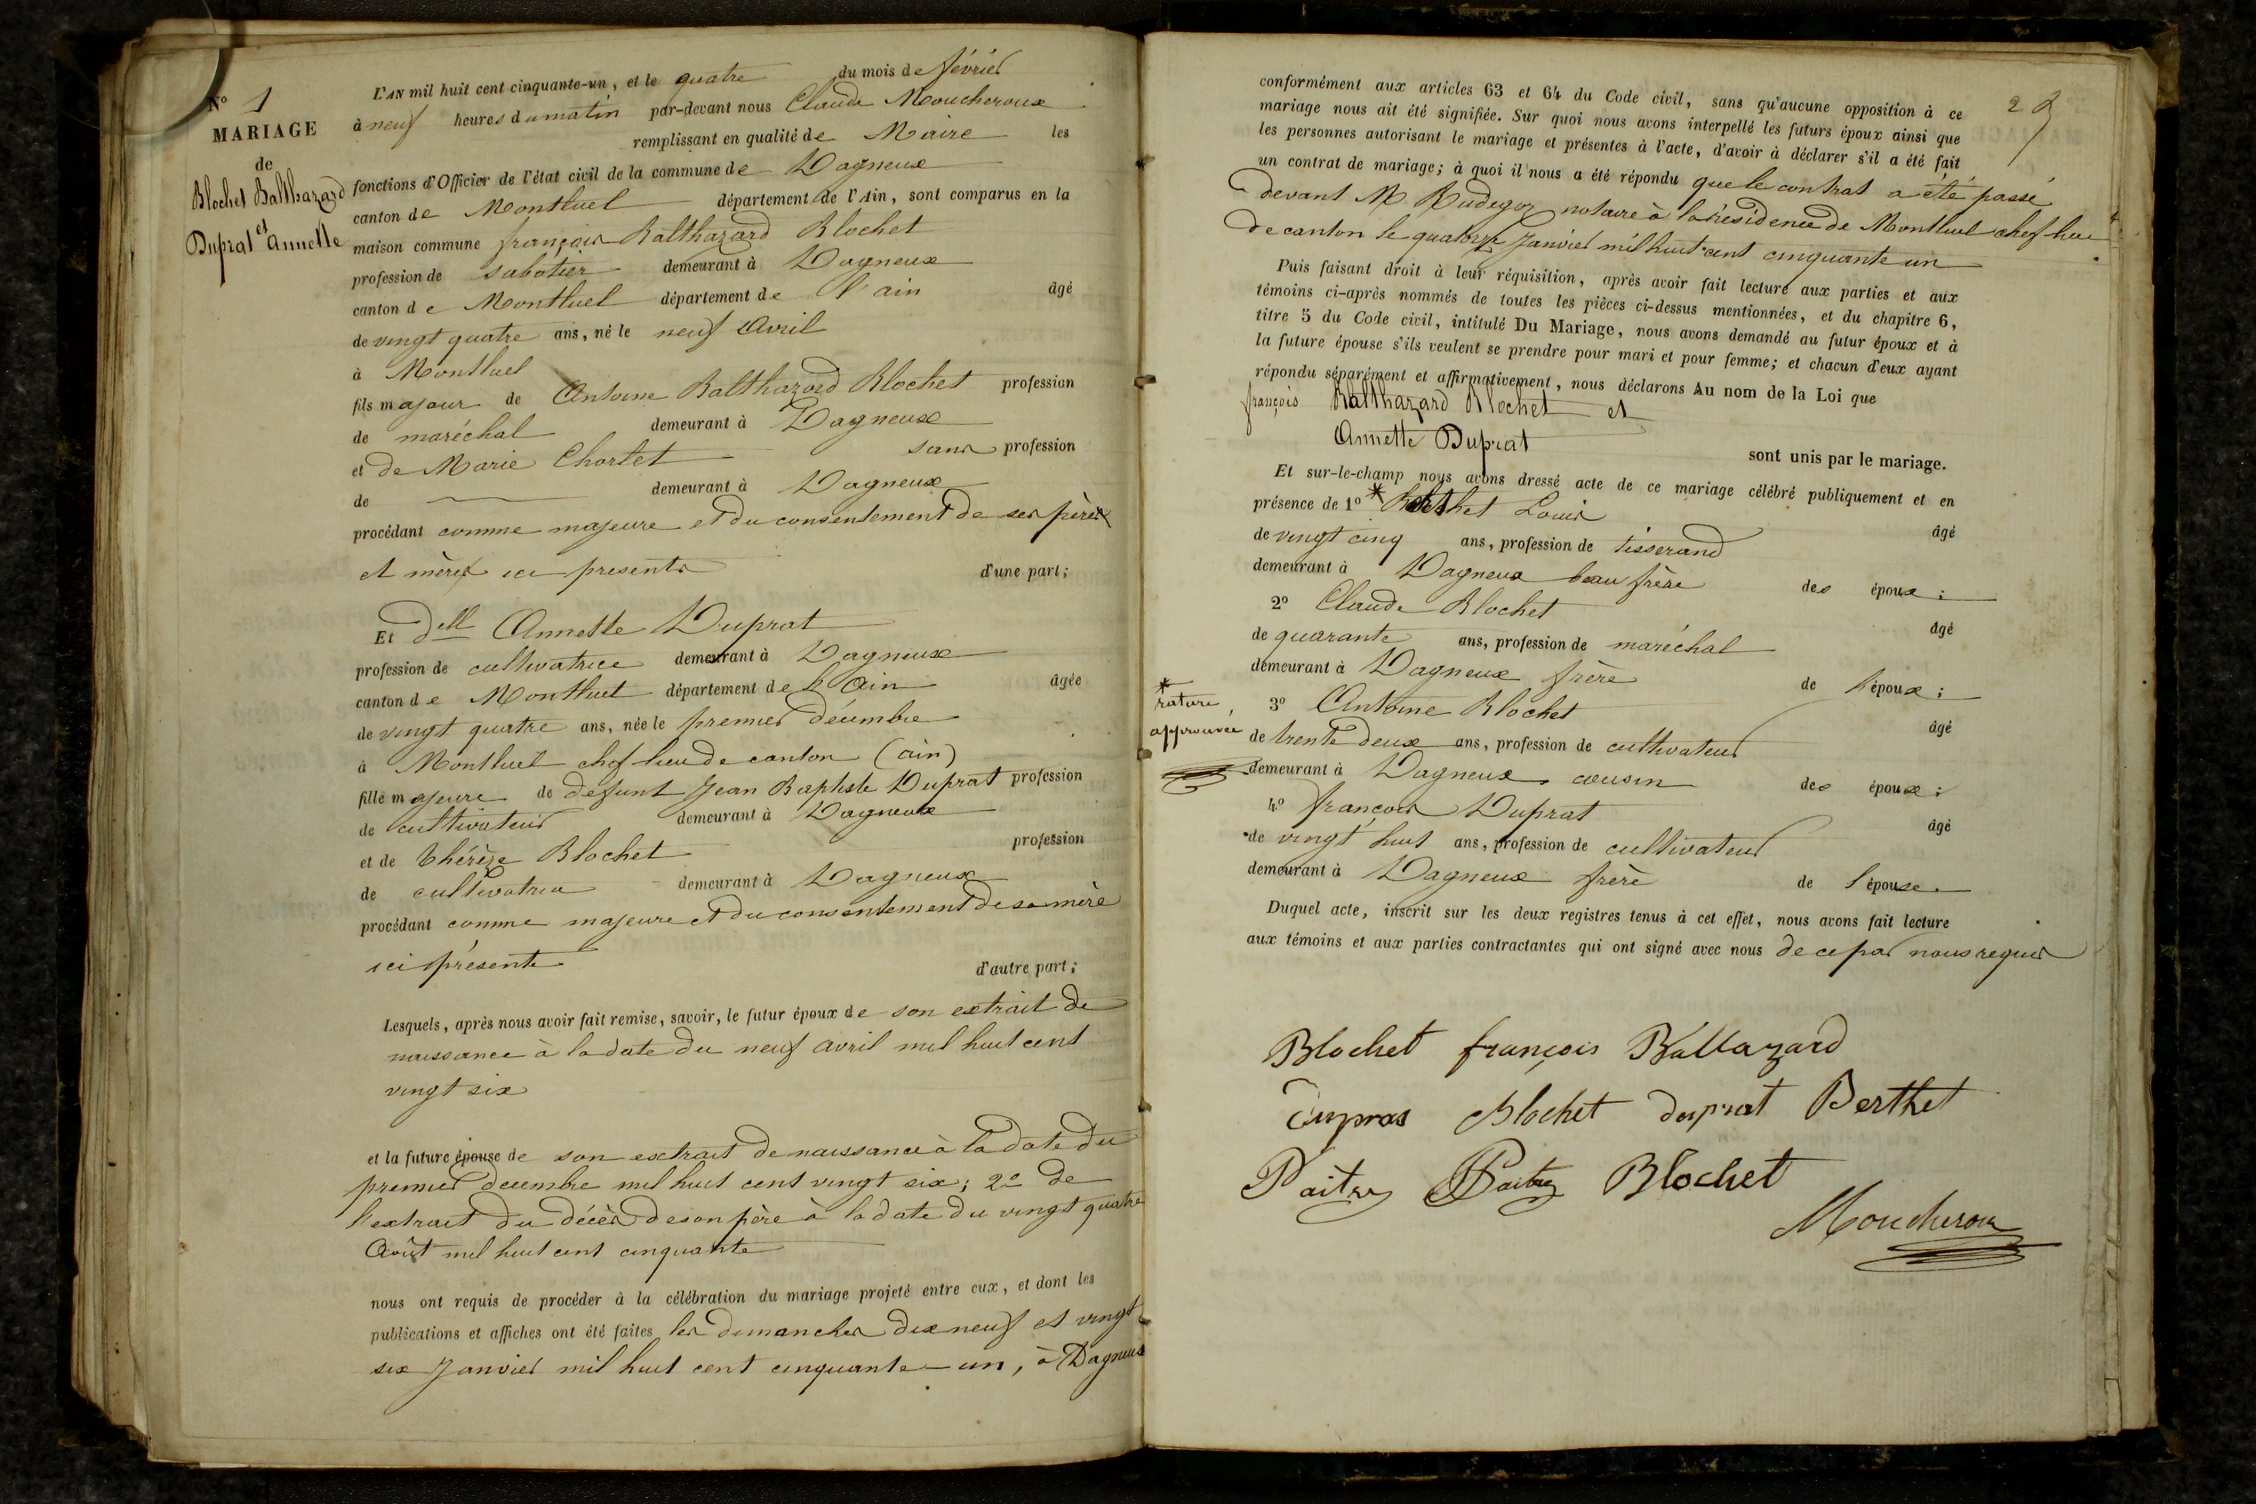 N° 1
MARIAGE
de
Blochet Balthazard
et
Duprat Annette
L'AN mil huit cent cinquante-un, et le quatre du mois de février
à neuf heures du matin par-devant nous Claude Moucheroux
remplissant en qualité de Maire les
fonctions d'Officier de l'état civil de la commune de Dagneux
canton de Montluel département de l'Ain, sont comparus en la
maison commune françois Balthazard Blochet
profession de sabotier demeurant à Dagneux
canton de Montluel département de l'ain âgé
de vingt quatre ans, né le neuf Avril
à Montluel
fils majeur de Antoine Balthazard Blochet profession
de maréchal demeurant à Dagneux
et de Marie Chortet sans profession
de demeurant à Dagneux
procédant comme majeure et du consentement de ses père
et mère ici presents d'une part;
Et dell Annette Duprat
profession de cultivatrice demeurant à Dagneux
canton de Montluel département de l'Ain âgée
de vingt quatre ans, née le premier décembre
à Montluel chef lieu de canton (ain)
fille majeure de defunt Jean Baptiste Duprat profession
de cultivateur demeurant à Dagneux
et de thérèze Blochet profession
de cultivatrice demeurant à Dagneux
procédant comme majeure et du consentement de sa mère
ici présente d'autre part;
Lesquels, après nous avoir fait remise, savoir, le futur époux de son extrait de
naissance à la date du neuf avril mil huit cent
vingt six
et la future épouse de son extrait de naissance à la date du
premier decembre mil huit cent vingt six; 2° de
l'extrait du décès de son père à la date du vingt quatre
Août mil huit cent cinquante
nous ont requis de procéder à la célébration du mariage projeté entre eux, et dont les
publications et affiches ont été faites les dimanches dix neuf et vingt
six Janvier mil huit cent cinquante-un, à Dagneux
2
conformément aux articles 63 et 64 du Code civil, sans qu'aucune opposition à ce
mariage nous ait été signifiée. Sur quoi nous avons interpellé les futurs époux ainsi que
les personnes autorisant le mariage et présentes à l'acte, d'avoir à déclarer s'il a été fait
un contrat de mariage; à quoi il nous a été répondu que le contrat a été passé
devant M Rudegoz notaire à la résidence de Montluel chef lieu
de canton le quatorze Janvier mil huit cent cinquante un
Puis faisant droit à leur réquisition, après avoir fait lecture aux parties et aux
témoins ci-après nommés de toutes les pièces ci-dessus mentionnées, et du chapitre 6,
titre 5 du Code civil, intitulé Du Mariage, nous avons demandé au futur époux et à
la future épouse s'ils veulent se prendre pour mari et pour femme; et chacun d'eux ayant
répondu séparément et affirmativement, nous déclarons Au nom de la Loi que
françois Balthazard Blochet et
Annette Duprat
sont unis par le mariage.
Et sur-le-champ nous avons dressé acte de ce mariage célébré publiquement et en
présence de 1° * Berthet Louis âgé
de vingt cinq ans, profession de tisserand
demeurant à Dagneux beau frère des époux;
2° Claude Blochet âgé
de quarante ans, profession de maréchal
demeurant à Dagneux frère de l'époux;
3° Antoine Blochet âgé
de trente deux ans, profession de cultivateur
demeurant à Dagneux cousin des époux;
4° françois Duprat âgé
de vingt huit ans, profession de cultivateur
demeurant à Dagneux frère de l'épouse.
* rature
approuvée
Duquel acte, inscrit sur les deux registres tenus à cet effet, nous avons fait lecture
aux témoins et aux parties contractantes qui ont signé avec nous de ce par nous requis
Blochet françois Baltazard
Blochet duprat Berthet
Paitre Paitre Blochet
Moucheroux